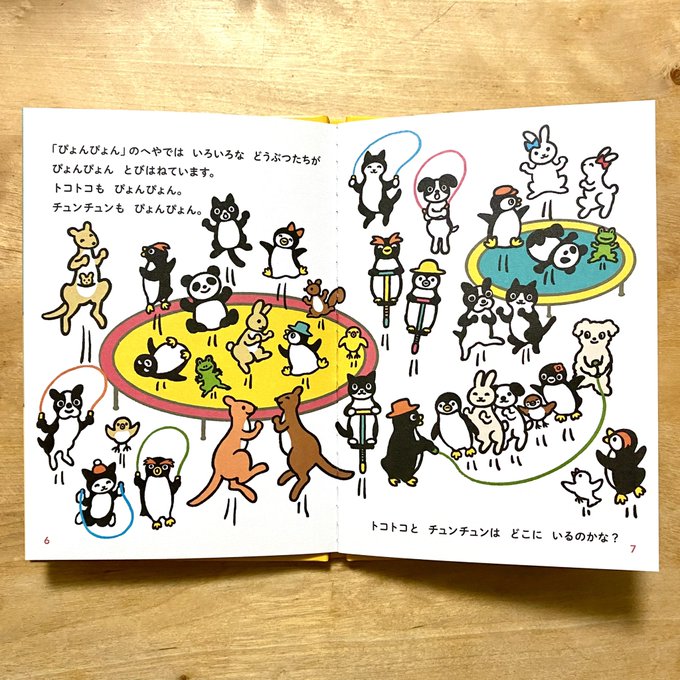 「ぴょんぴょん」のへやでは いろいろな どうぶつたちが
ぴょんぴょん とびはねています。
トコトコも ぴょんぴょん。
チュンチュンも ぴょんぴょん。
6
トコトコと チュンチュンは どこに いるのかな？
7